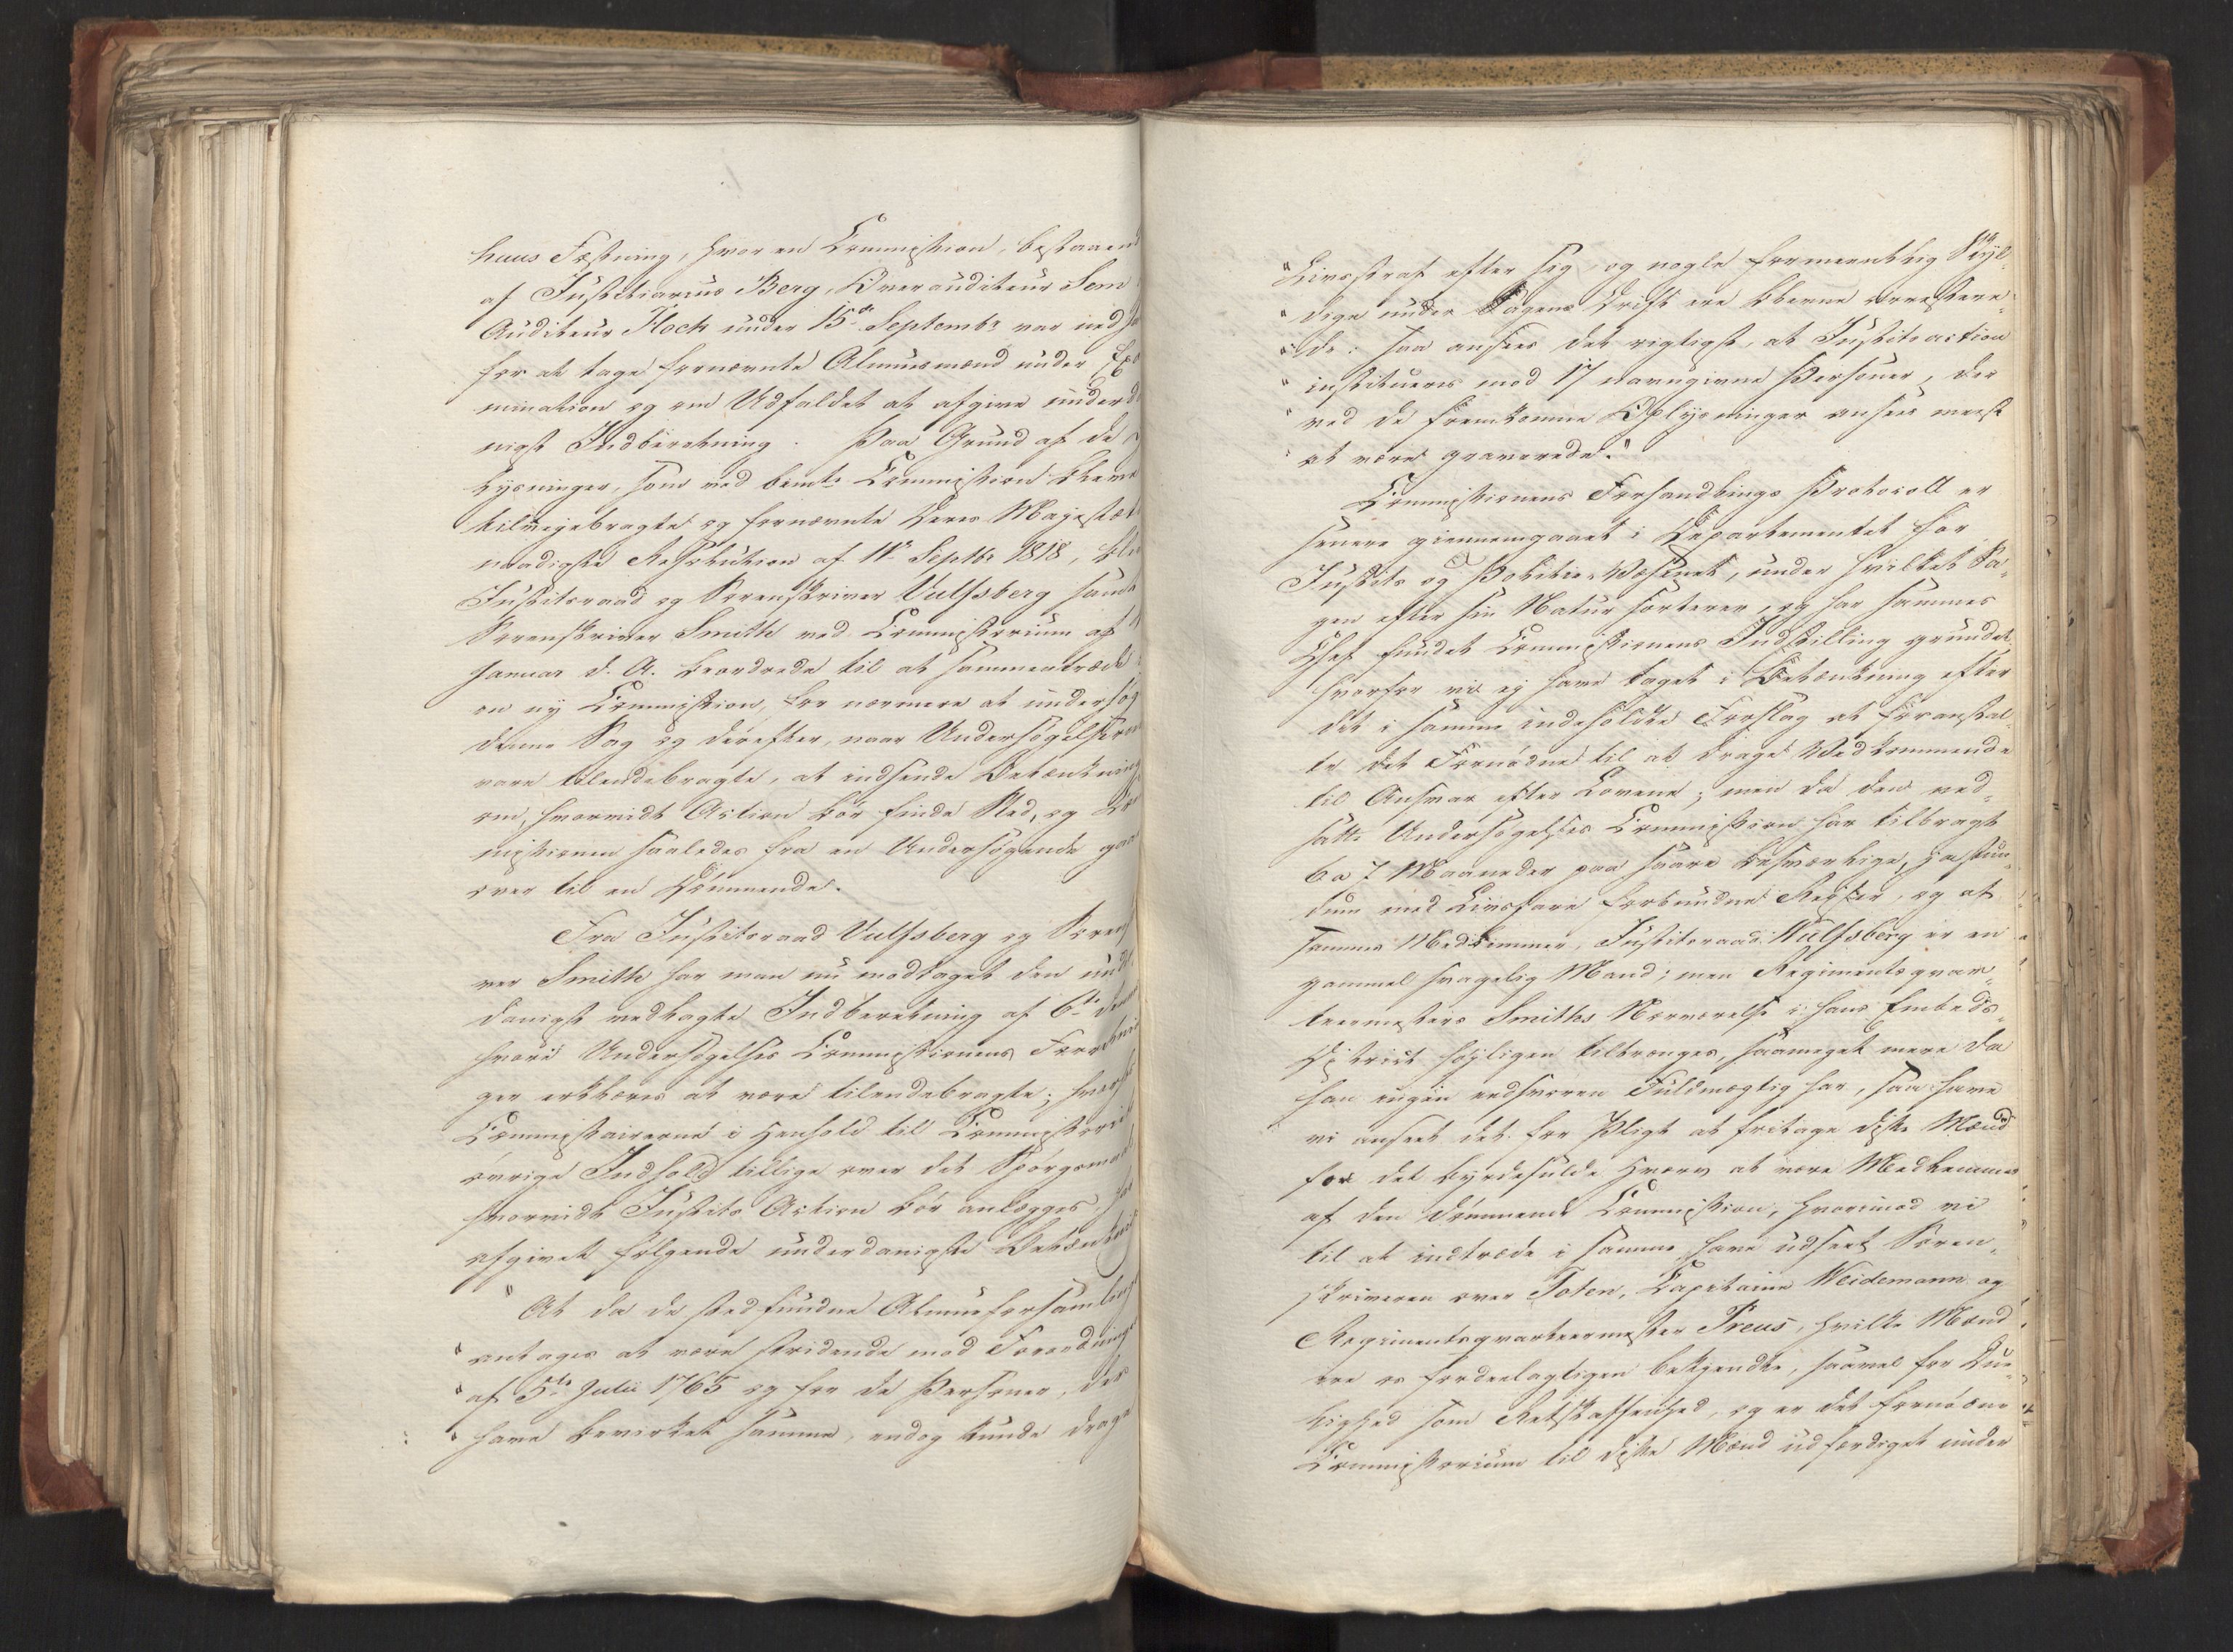 huus Fæstning, hvor en Commission, bestaaend
af Justitiarius Berg, Overauditeur Sem
Auditeur Flock under 15de Septembr var ned
for at tage fornævnte Almuesmænd under Exa
mination og om Udfaldet at afgive underd
nigst Indberetning. Paa Grund af de
lysninger, som ved bemte Commission bleve
tilveiebragte og fornævnte Deres Majestæts
naadigste Resolution af 11te Septbr 1818, ble
Justitsraad og Sorenskriver Vulfsberg samt
Sorenskriver Smith ved Commissorium af
Januar d. A. beordrede til at sammentræde
en ny Commission, for nærmere at undersøg
denne Sag og derefter, naar Undersøgelserne
vare tilendebragte, at indsende Betænkning
om, hvorvidt Action bør finde Sted, og Com
missionen saaledes fra en Undersøgende gaa
over til en Dømmende.
Fra Justitsraad Vulfsberg og Sorens
ver Smith har man nu modtaget den und
danigst vedlagte Indberetning af 6te denne
hvori Undersøgelses Commissionens Forretnin
ger erklæres at være tilendebragte; hvorhos
Commissairerne i Henhold til Commissoriets
øvrige Indhold tillige over det Spørgsmaal
hvorvidt Justits Action bør anlægges, har
afgivet følgende underdanigste Betænkning
"At da de stedfundne Almueforsamlinger
" antages at være stridende mod Forordningen
" af 5te Julii 1765 og for de Personer, der
" have bevirket samme, endog kunde drage
" Livsstraf efter sig, og nogle formeentlig Skyl-
" dige under Sagens Drift ere blevne arrestere-
" de: saa ansees det rigtigst, at Justitsaction
" institueres mod 17 navngivne Personer, der
" ved de fremkomne Oplysninger ansees meest
" at være graverede."
Commissionens Forhandlings Protocoll er
senere giennemgaaet i Departementet for
Justits og Politie-Væsenet, under hvilket Sa-
gen efter sin Natur sorterer, og har sammes
Chef fundet Commissionens Indstilling grundet
hvorfor vi ej have taget i Betænkning efter
det i samme indeholdte Forslag at foranstal-
te det Fornødne til at drage Vedkommende
til Ansvar efter Lovene; men da den ned-
satte Undersøgelses Commission har tilbragt
6 a 7 Maaneder paa svare besværlige, ja stun-
dum med Livsfare forbundne Reiser, og at
samme Medlemmer, Justitsraad Wulfsberg er en
gammel svagelig Mand; men Regimentsqvar-
teermesters Smiths Nærværelse i hans Embeds-
District høiligen tiltrænges, saameget mere da
han ingen eedsvoren Fuldmægtig har, saa have
vi anseet det for Pligt at fritage disse Mænd
for det byrdefulde Hverv at være Medlemmer
af den dømmende Commission, hvorimod vi
til at indtræde i samme have udseet Soren-
skriveren over Toten, Capitaine Weidemann og
Regimentsqvarteermester Preus, hvilke Mænd
ere os fordeelagtigen bekjendte, saavel for Due-
lighed som Retskaffenhed, og er det fornødne
Commissorium til disse Mænd udfærdiget under